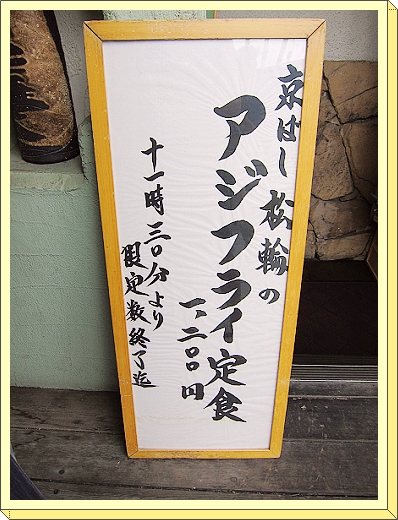 京ばし松輪の
アジフライ定食
一、二〇〇円
十一時三〇分より
限定数終了迄